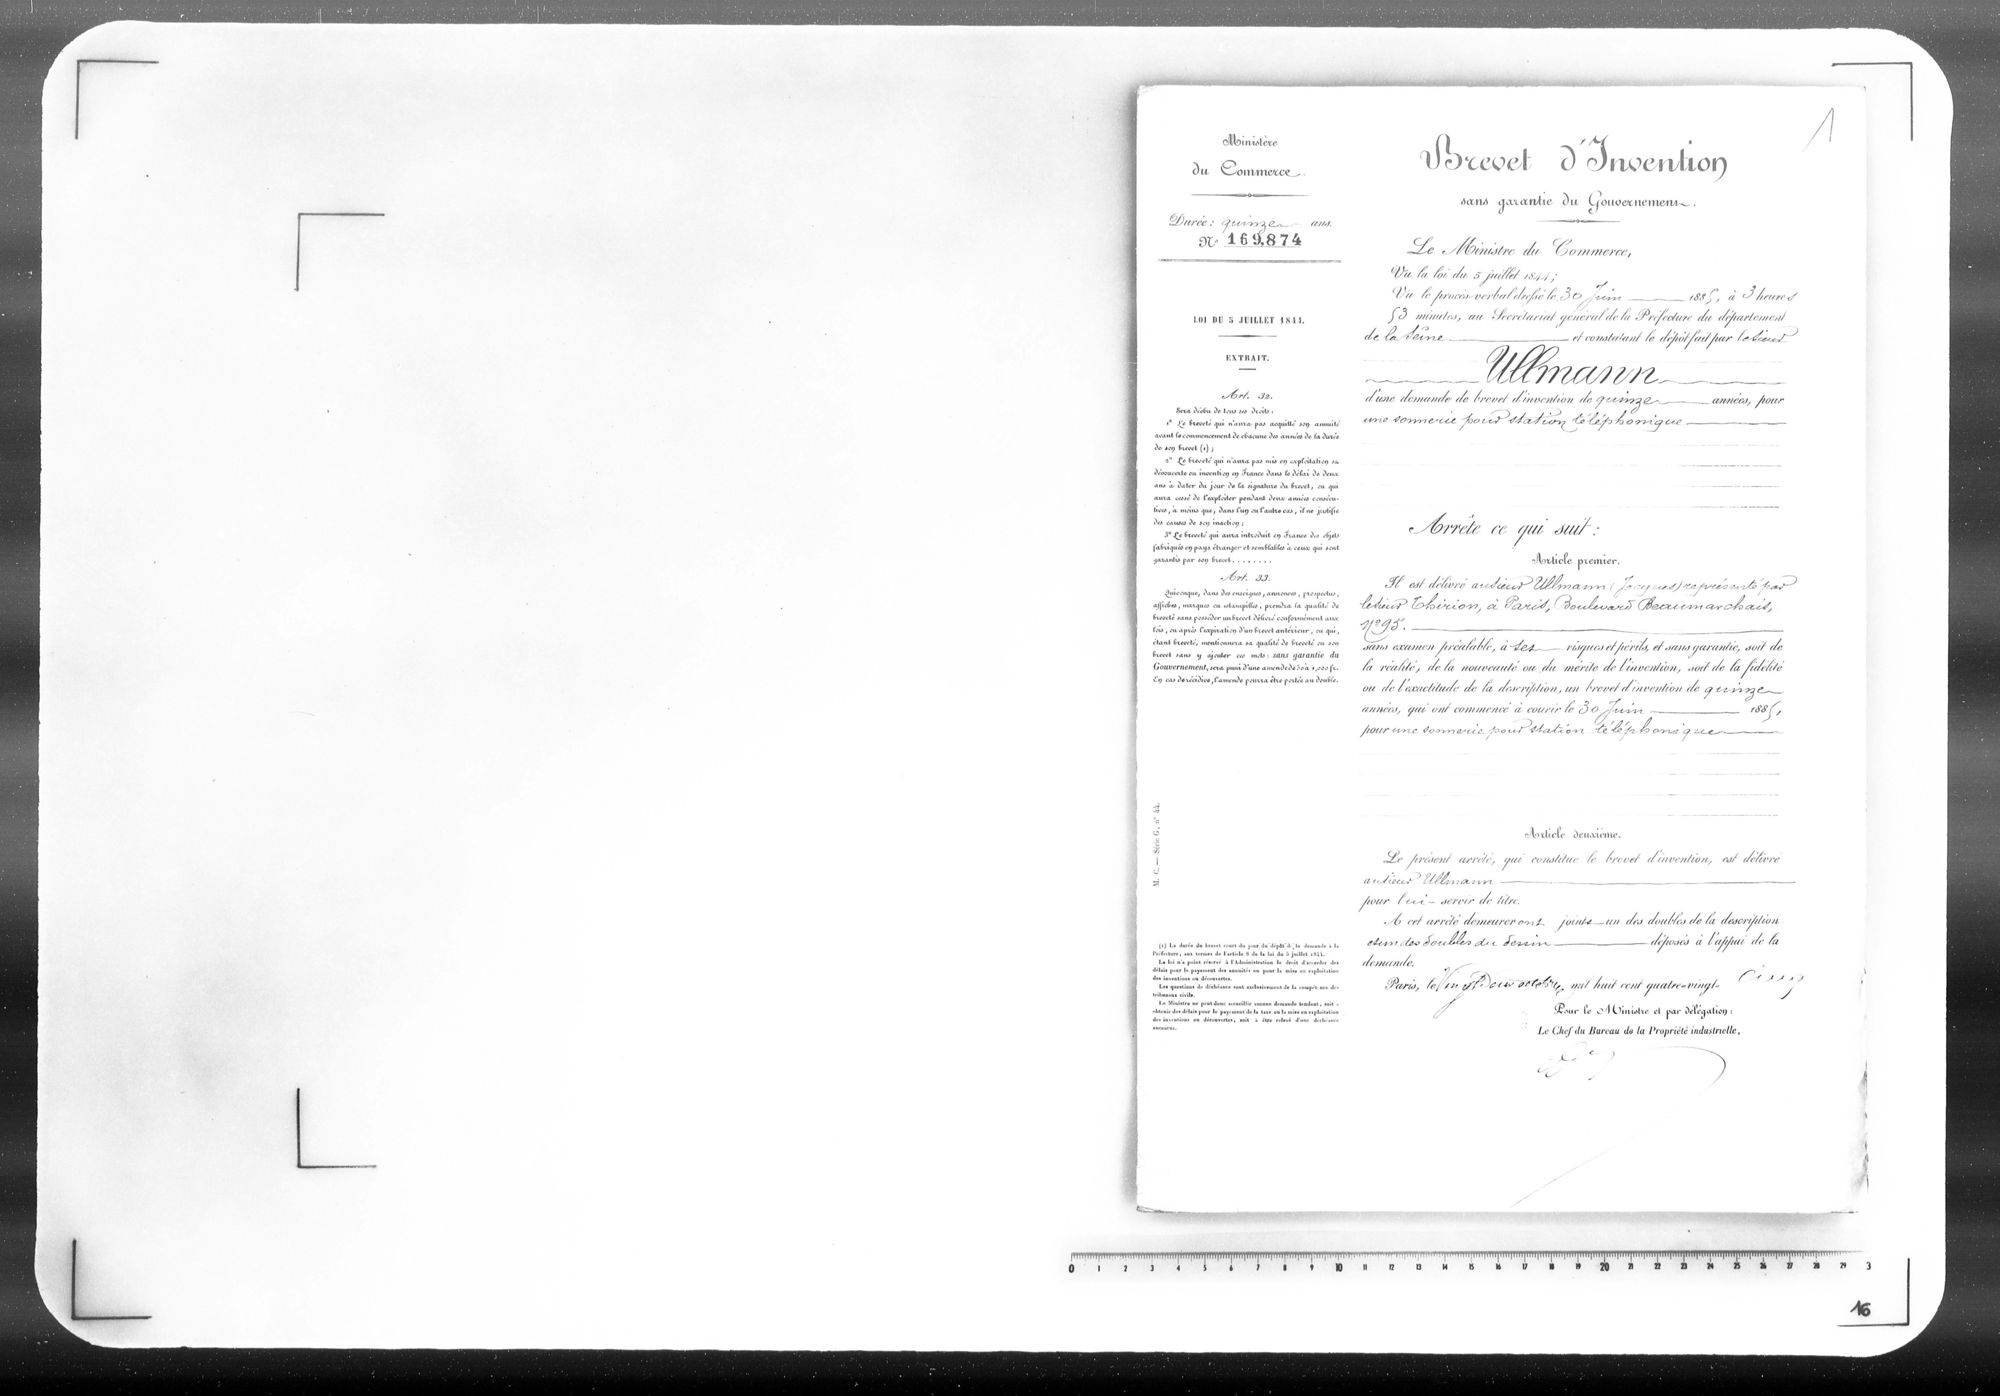 1
Ministère
du Commerce.
Durée : quinze ans.
N° 169.874
LOI DU 5 JUILLET 1844.
EXTRAIT.
Art. 32.
Sera déchu de tous ses droits :
1° Le breveté qui n'aura pas acquitté son annuité
avant le commencement de chacune des années de la durée
de son brevet (1) ;
2° Le breveté qui n'aura pas mis en exploitation sa
découverte ou invention en France dans le délai de deux
ans à dater du jour de la signature du brevet, ou qui
aura cessé de l'exploiter pendant deux années consécu-
tives, à moins que, dans l'un ou l'autre cas, il ne justifie
des causes de son inaction ;
3° Le breveté qui aura introduit en France des objets
fabriqués en pays étranger et semblables à ceux qui sont
garantis par son brevet........
Art. 33.
Quiconque, dans des enseignes, annonces, prospectus,
affiches, marques ou estampilles, prendra la qualité de
breveté sans posséder un brevet délivré conformément aux
lois, ou après l'expiration d'un brevet antérieur, ou qui,
étant breveté, mentionnera sa qualité de breveté ou son
brevet sans y ajouter ces mots : sans garantie du
Gouvernement, sera puni d'une amende de 50 à 1,000 fr.
En cas de récidive, l'amende pourra être portée au double.
M. C. — Série G, n° 44.
(1) La durée du brevet court du jour du dépôt de la demande à la
Préfecture, aux termes de l'article 8 de la loi du 5 juillet 1844.
La loi n'a point réservé à l'Administration le droit d'accorder des
délais pour le payement des annuités ou pour la mise en exploitation
des inventions ou découvertes.
Les questions de déchéance sont exclusivement de la compétence des
tribunaux civils.
Le Ministre ne peut donc accueillir aucune demande tendant, soit à
obtenir des délais pour le payement de la taxe ou la mise en exploitation
des inventions ou découvertes, soit à être relevé d'une déchéance
encourue.
Brevet d'Invention
sans garantie du Gouvernement.
Le Ministre du Commerce,
Vu la loi du 5 juillet 1844 ;
Vu le procès-verbal dressé le 30 Juin 1885, à 3 heures
53 minutes, au Secrétariat général de la Préfecture du département
de la Seine et constatant le dépôt fait par le sieur
Ullmann
d'une demande de brevet d'invention de quinze années, pour
une sonnerie pour station téléphonique
Arrête ce qui suit :
Article premier.
Il est délivré au sieur Ullmann (Jacques) représenté par
le sieur Thirion, à Paris, Boulevard Beaumarchais,
N° 95.
sans examen préalable, à ses risques et périls, et sans garantie, soit de
la réalité, de la nouveauté ou du mérite de l'invention, soit de la fidélité
ou de l'exactitude de la description, un brevet d'invention de quinze
années, qui ont commencé à courir le 30 Juin 1885,
pour une sonnerie pour station téléphonique
Article deuxième.
Le présent arrêté, qui constitue le brevet d'invention, est délivré
au sieur Ullmann
pour lui servir de titre.
A cet arrêté demeureront joints un des doubles de la description
et un des doubles du dessin déposés à l'appui de la
demande.
Paris, le Vingt deux octobre mil huit cent quatre-vingt- cinq
Pour le Ministre et par délégation :
Le Chef du Bureau de la Propriété industrielle,
0 1 2 3 4 5 6 7 8 9 10 11 12 13 14 15 16 17 18 19 20 21 22 23 24 25 26 27 28 29 3
16